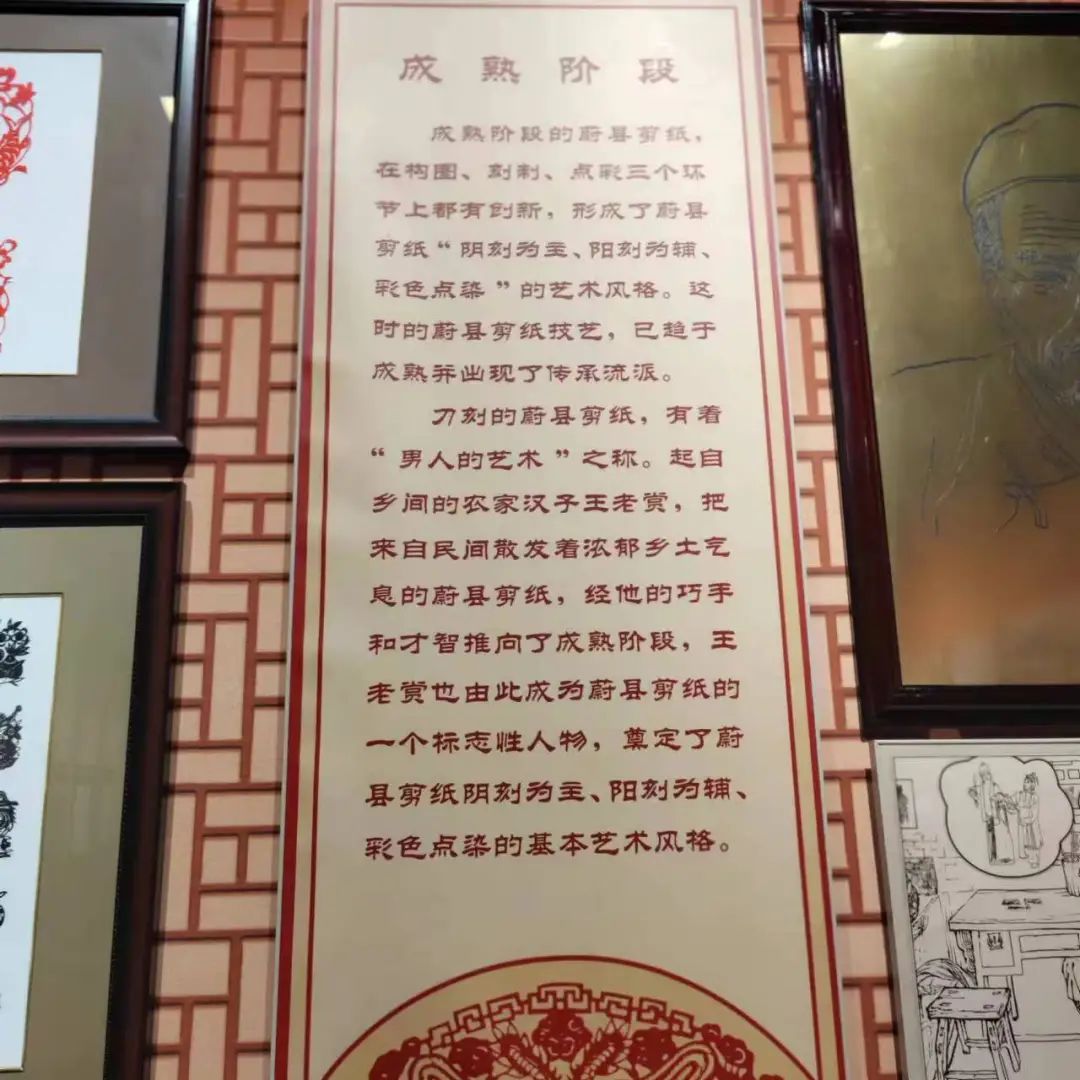 成熟阶段
成熟阶段的蔚县剪纸，
在构图、刻制、点彩三个环
节上都有创新，形成了蔚县
剪纸“阴刻为主、阳刻为辅、
彩色点染”的艺术风格。这
时的蔚县剪纸技艺，已趋于
成熟并出现了传承流派。
刀刻的蔚县剪纸，有着
“男人的艺术”之称。起自
乡间的农家汉子王老赏，把
来自民间散发着浓郁乡土气
息的蔚县剪纸，经他的巧手
和才智推向了成熟阶段，王
老赏也由此成为蔚县剪纸的
一个标志性人物，奠定了蔚
县剪纸阴刻为主、阳刻为辅、
彩色点染的基本艺术风格。